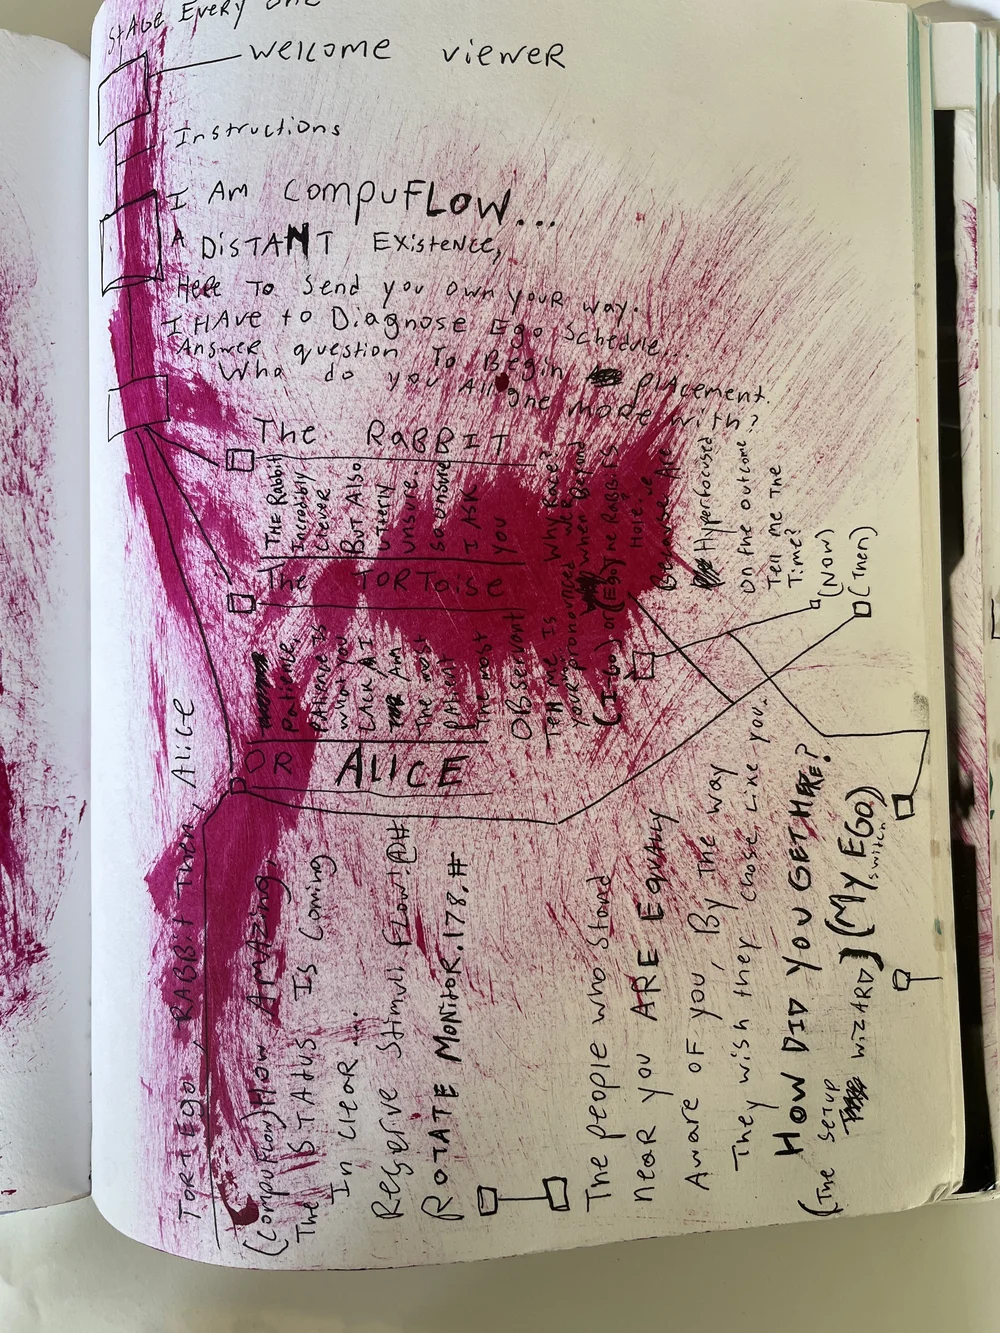 STAGE EVERY ONE
WELCOME VIEWER
Instructions
I AM COMPUFLOW...
A DISTANT EXISTENCE,
Here To Send you OWN YOUR WAY.
I HAVE to Diagnose Ego Schedule...
Answer question To Begin PLACEMENT.
Who do you Aligne mode with?
The RABBIT
THE RABBIT
Incredibly
Clever
But Also
utterly
unsure.
so unsure
I ASK
you
Why Race?
when Beyond
The Rabbits
Hole?
Because we Are
Hyperfocused
On the outcome
Tell me The
Time?
(Now)
(Then)
The TORTOISE
Patience,
Patience is
what you
Lack A I
AM
The most
PATIENT
The most
OBSERVANT
Tell me Is
your pronounced
(I-Go) or (Ego)
OR ALICE
TORT Ego, RABBIT Then, Alice
(Compuflow) How AMAZING,
The STATUS Is Coming
In cleaR...
Reserve Stimuli Flow!@#
ROTATE MONITOR.178.#
The people who Stand
near you ARE Equally
Aware OF you, By The way
They wish they chose Like you.
HOW DID YOU GET HERE?
(The SETUP WIZARD) (MY EGO)
switch